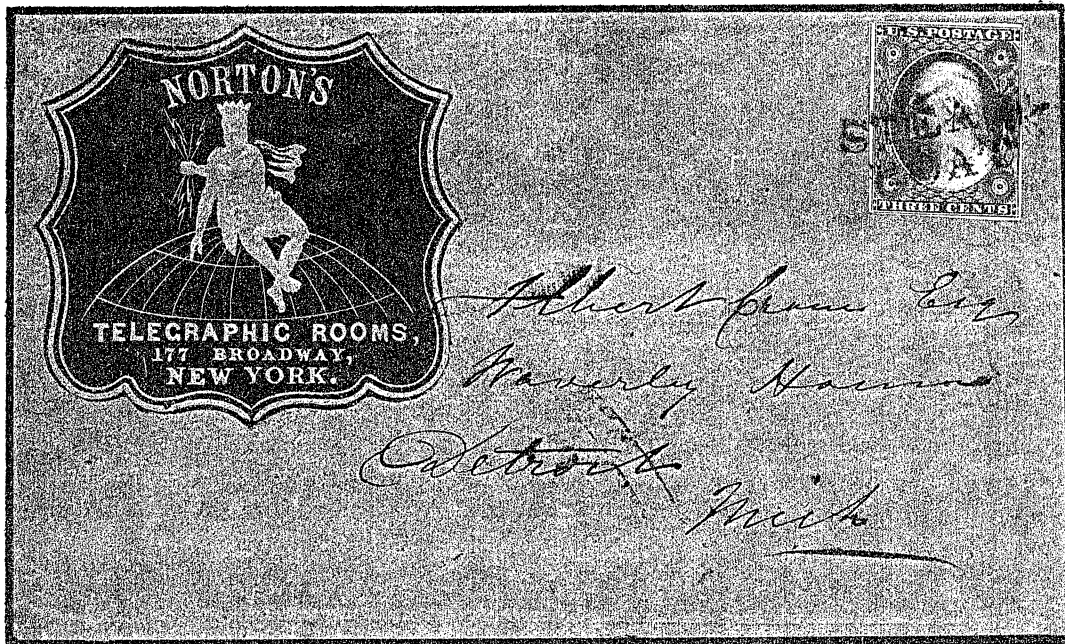 NORTON'S
TELEGRAPHIC ROOMS,
177 BROADWAY,
NEW YORK.
U.S. POSTAGE
THREE CENTS
STEAM
Albert Crane Esq
Waverly House
Detroit
Mich